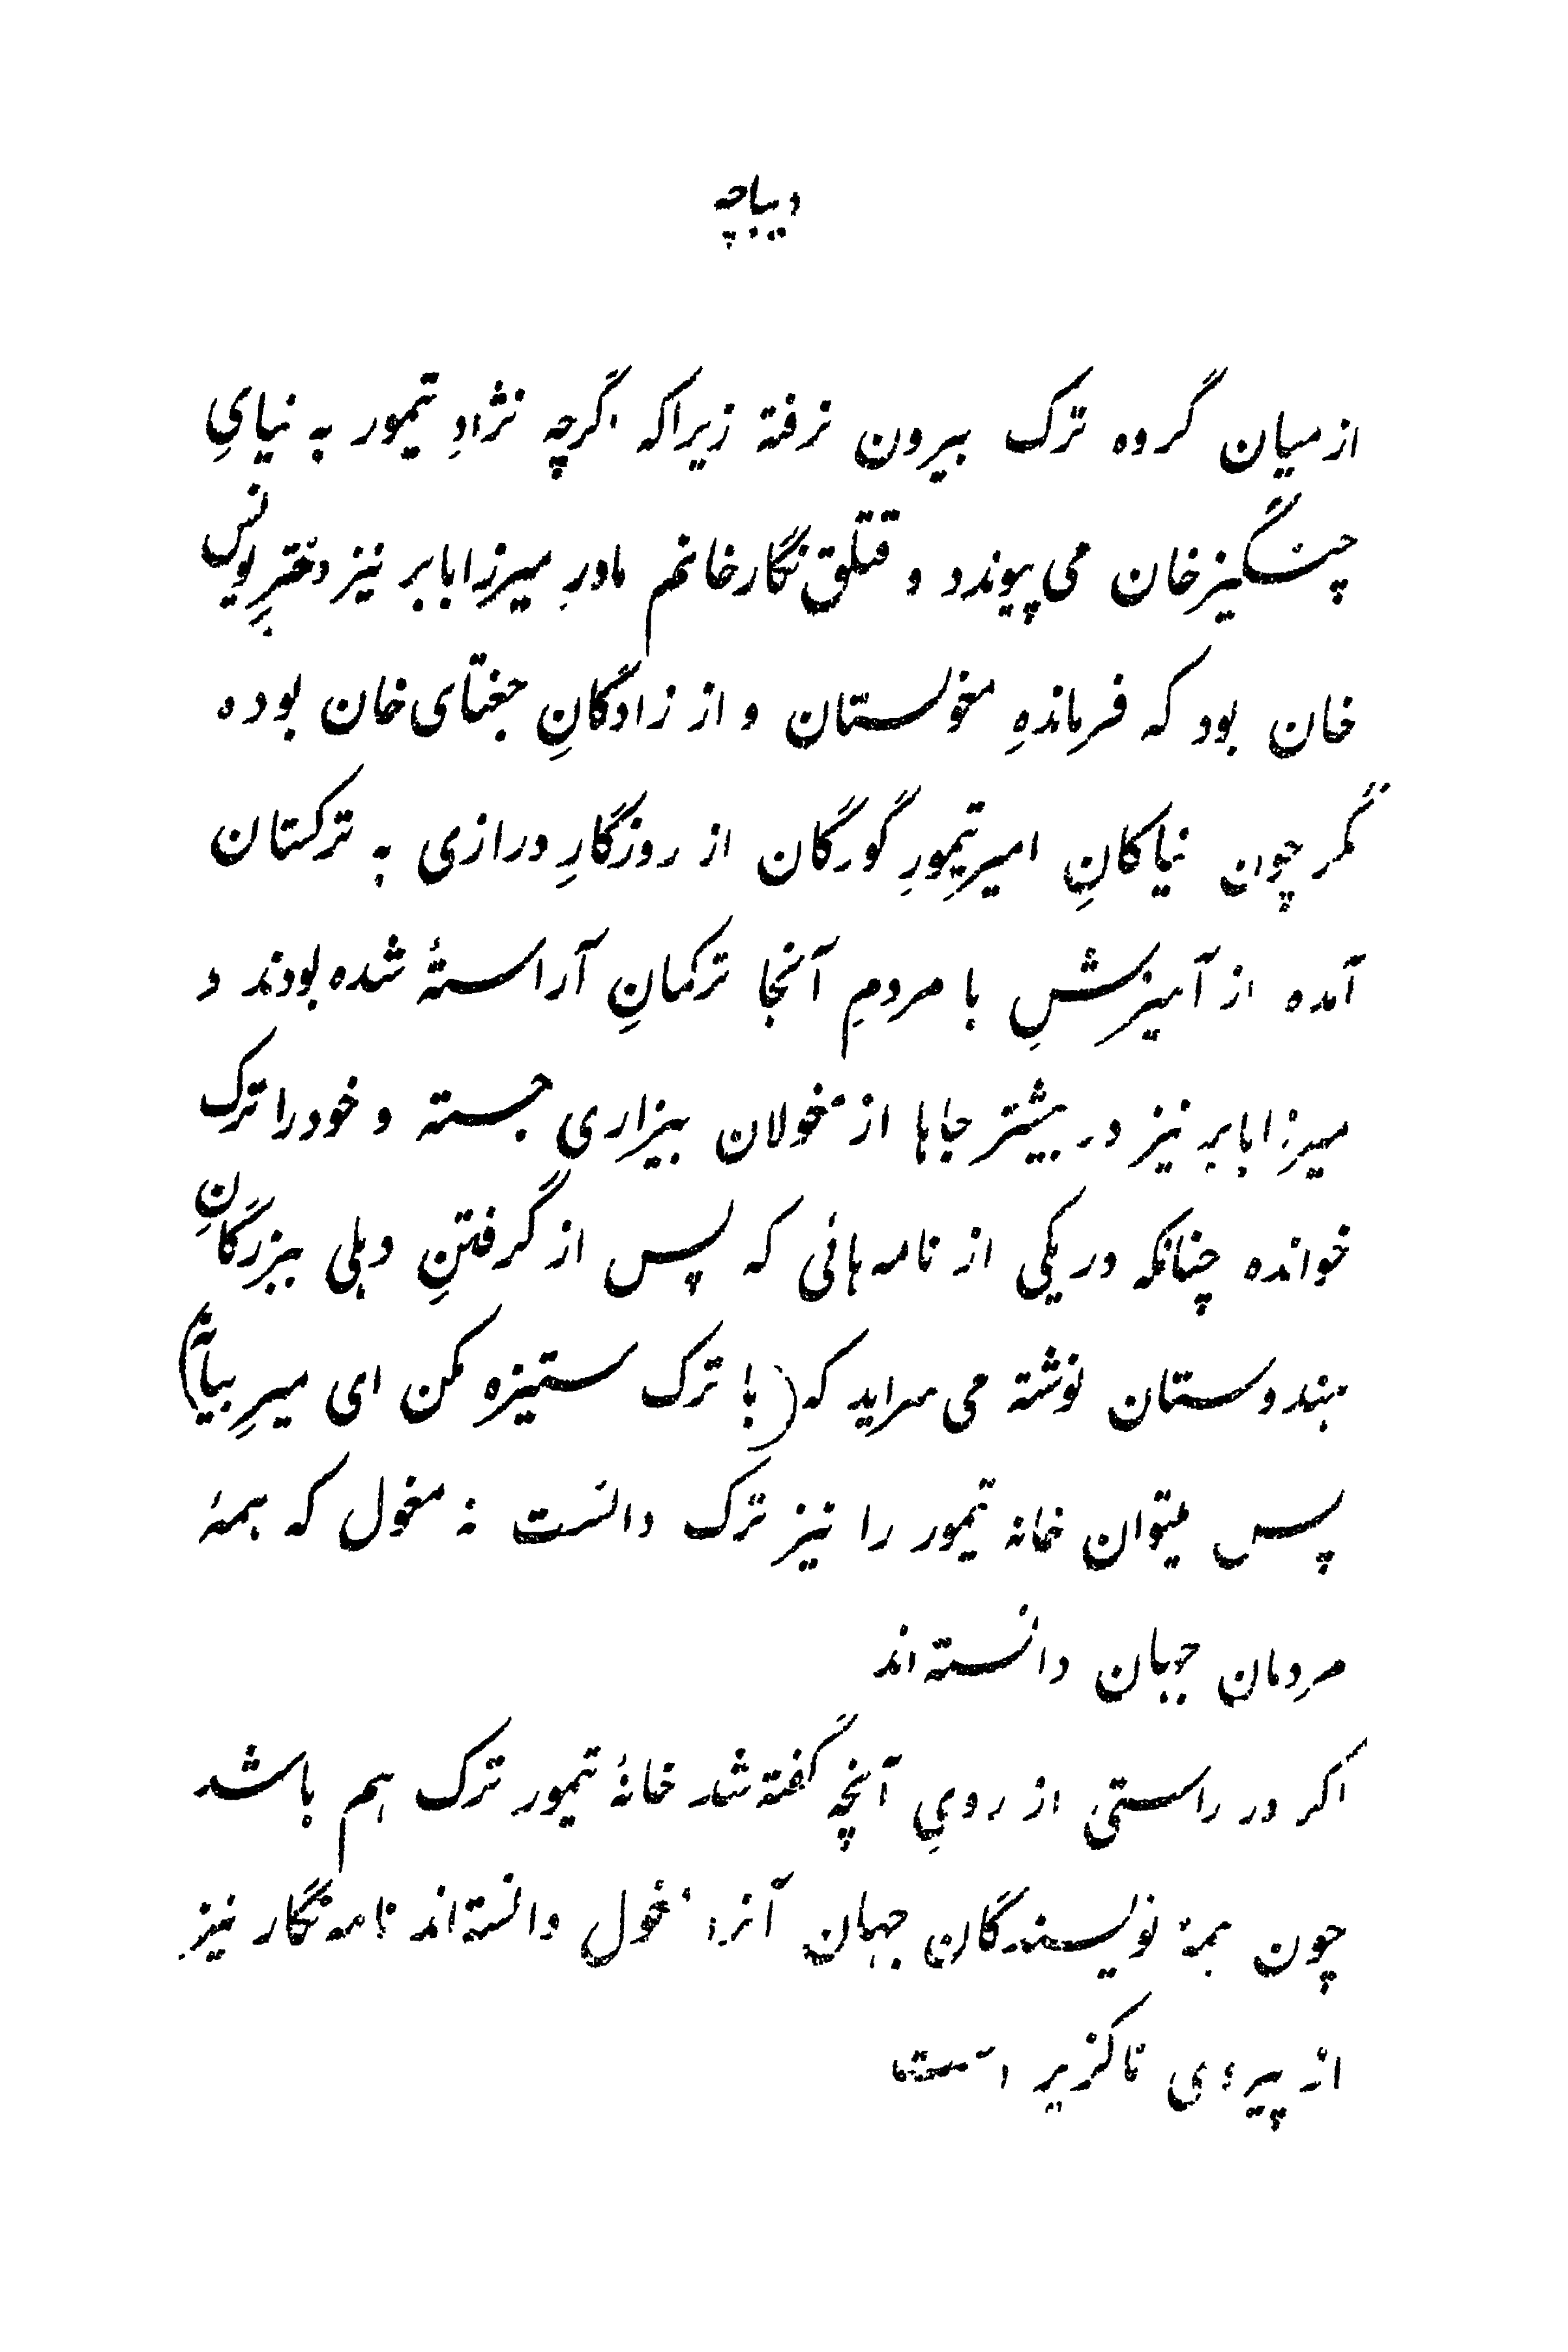 دیباچه
از میان گروه ترک بیرون نرفته زیرا که اگرچه نژادِ تیمور به نیایِ
چنگیز خان می پیوندد و قتلق نگار خانم مادرِ میرزا بابر نیز دخترِ یونس
خان بود که فرماندهِ مغولستان و از زادگانِ جغتای خان بوده
مگر چون نیاکانِ امیر تیمورِ گورگان از روزگارِ درازی به ترکستان
آمده از آمیزشِ با مردمِ آنجا ترکمانِ آراستهٔ شده بودند و
میرزا بابر نیز در بیشتر جاها از مغولان بیزاری جسته و خود را ترک
خوانده چنانکه در یکی از نامه هائی که پس از گرفتنِ دهلی ببزرگانِ
هندوستان نوشته می سراید که (با ترک ستیزه مکن ای میرِ بیانه)
پس میتوان خانه تیمور را نیز ترک دانست نه مغول که همهٔ
مردمان جهان دانسته اند
اگر در راستی از رویِ آنچه گفته شد خانهٔ تیمور ترک هم باشد
چون همهٔ نویسندگان جهان آنرا مغول دانسته اند نامه نگار نیز
از پیروی ناگزیر است